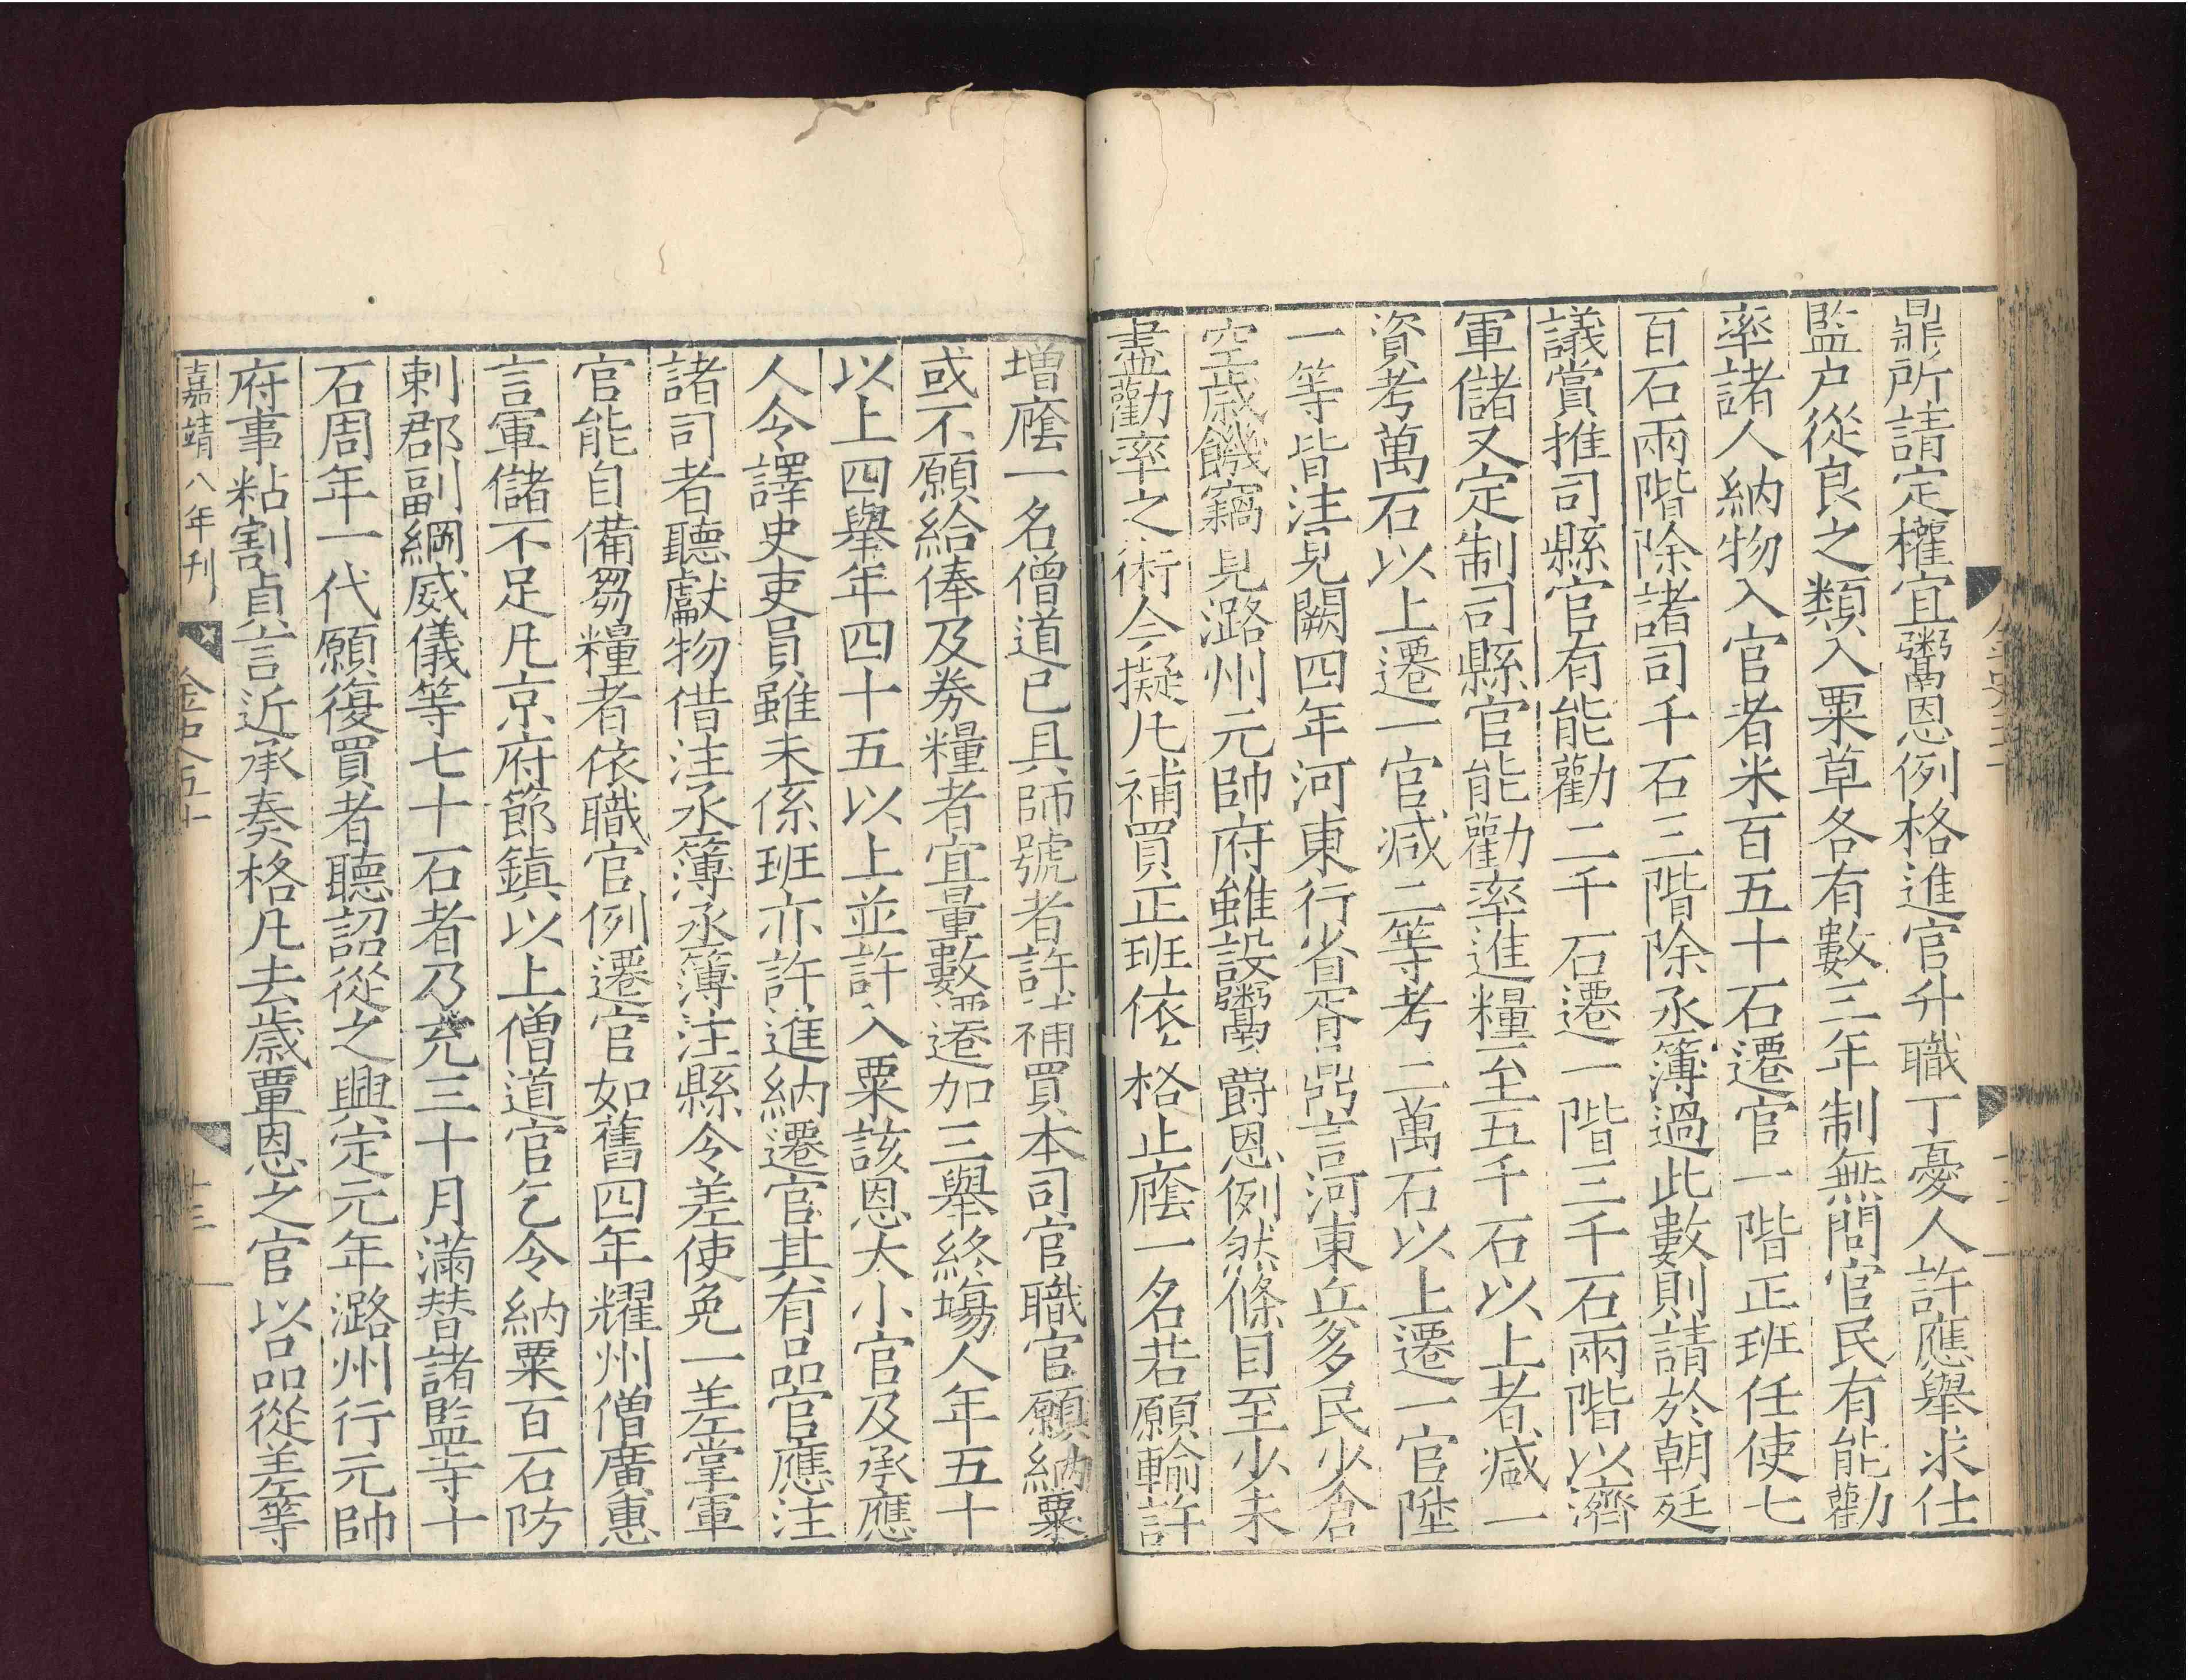 鼎所請定權宜鬻恩例格進官升職丁憂人許應舉求仕
監户從良之類入粟草各有數三年制無問官民有能勸
率諸人納物入官者米百五十石遷官一階正班任使七
百石兩階除諸司千石三階除丞簿過此數則請於朝廷
議賞推司縣官有能勸二千石遷一階三千石兩階以濟
軍儲又定制司縣官能勸率進糧至五千石以上者减一
資考萬石以上遷一官减二等考二萬石以上遷一官陞
一等皆注見闕四年河東行省胥鼎言河東兵多民少倉
空歲饑竊見潞州元帥府雖設鬻爵恩例然條目至少未
盡勸率之術今擬凡補買正班依格止廕一名若願輸許
增廕一名僧道已具師號者許補買本司官職官願納粟
或不願給俸及券糧者宜量數遷加三舉終塲人年五十
以上四舉年四十五以上並許入粟該恩大小官及承應
人令譯史吏員雖未係班亦許進納遷官其有品官應注
諸司者聽獻物借注丞簿丞簿注縣令差使免一差掌軍
官能自備芻糧者依職官例遷官如舊四年耀州僧廣惠
言軍儲不足凡京府節鎮以上僧道官乞令納粟百石防
剌郡副綱威儀等七十石者乃充三十月滿替諸監寺十
石周年一代願復買者聽詔從之興定元年潞州行元帥
府事粘割貞言近承奏格凡去歲覃恩之官以品從差等
嘉靖八年刊
金史五十
十三